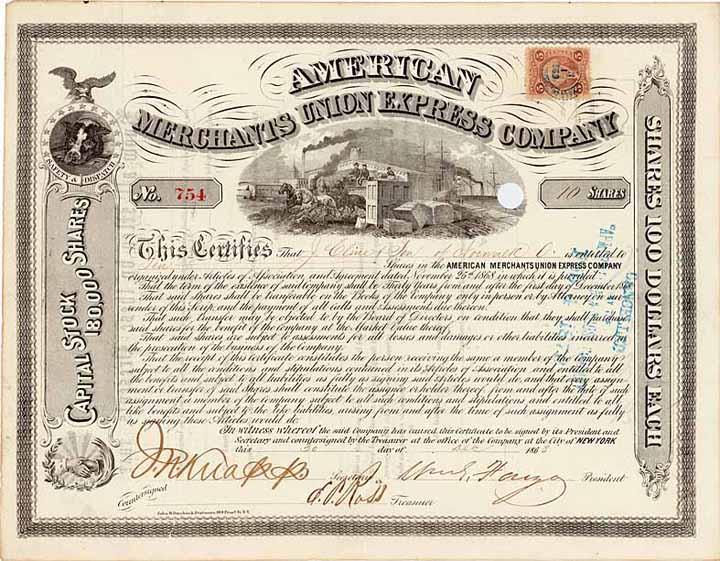 AMERICAN
MERCHANTS UNION EXPRESS COMPANY
SAFETY & DISPATCH
No. 754
10 SHARES
CAPITAL STOCK 180,000 SHARES
SHARES 100 DOLLARS EACH
This Certifies That J. is entitled to
Shares in the AMERICAN MERCHANTS UNION EXPRESS COMPANY
organized under Articles of Association and Agreement dated November 25th 1868 in which it is provided
That the term of the existence of said company shall be Thirty Years from and after the first day of December
That said Shares shall be transferable on the Books of the Company only in person or by Attorney on sur-
render of this Scrip and the payment of all Calls and Assessments due thereon.
That such Transfer may be objected to by the Board of Directors on condition that they shall purchase
said shares for the benefit of the company at the Market Value thereof.
That said shares are subject to assessment for all losses and damages or other liabilities incurred in
the prosecution of the business of the Company.
That the receipt of this Certificate constitutes the person receiving the same a member of the company
subject to all the conditions and stipulations contained in its Articles of Association and entitled to all
the benefits and subject to all liabilities as fully as signing said Articles would do, and that every assign-
ment or transfer of said Shares shall constitute the assignee or holder thereof from and after the date of such
assignment a member of the company subject to all such conditions and stipulations and entitled to all
like benefits and subject to the like liabilities arising from and after the time of such assignment as fully
as signing these Articles would do.
In witness whereof the said Company has caused this Certificate to be signed by its President and
Secretary and countersigned by the Treasurer at the office of the Company at the City of NEW YORK
this 30 day of Dec 1868
Secretary President
Countersigned Treasurer